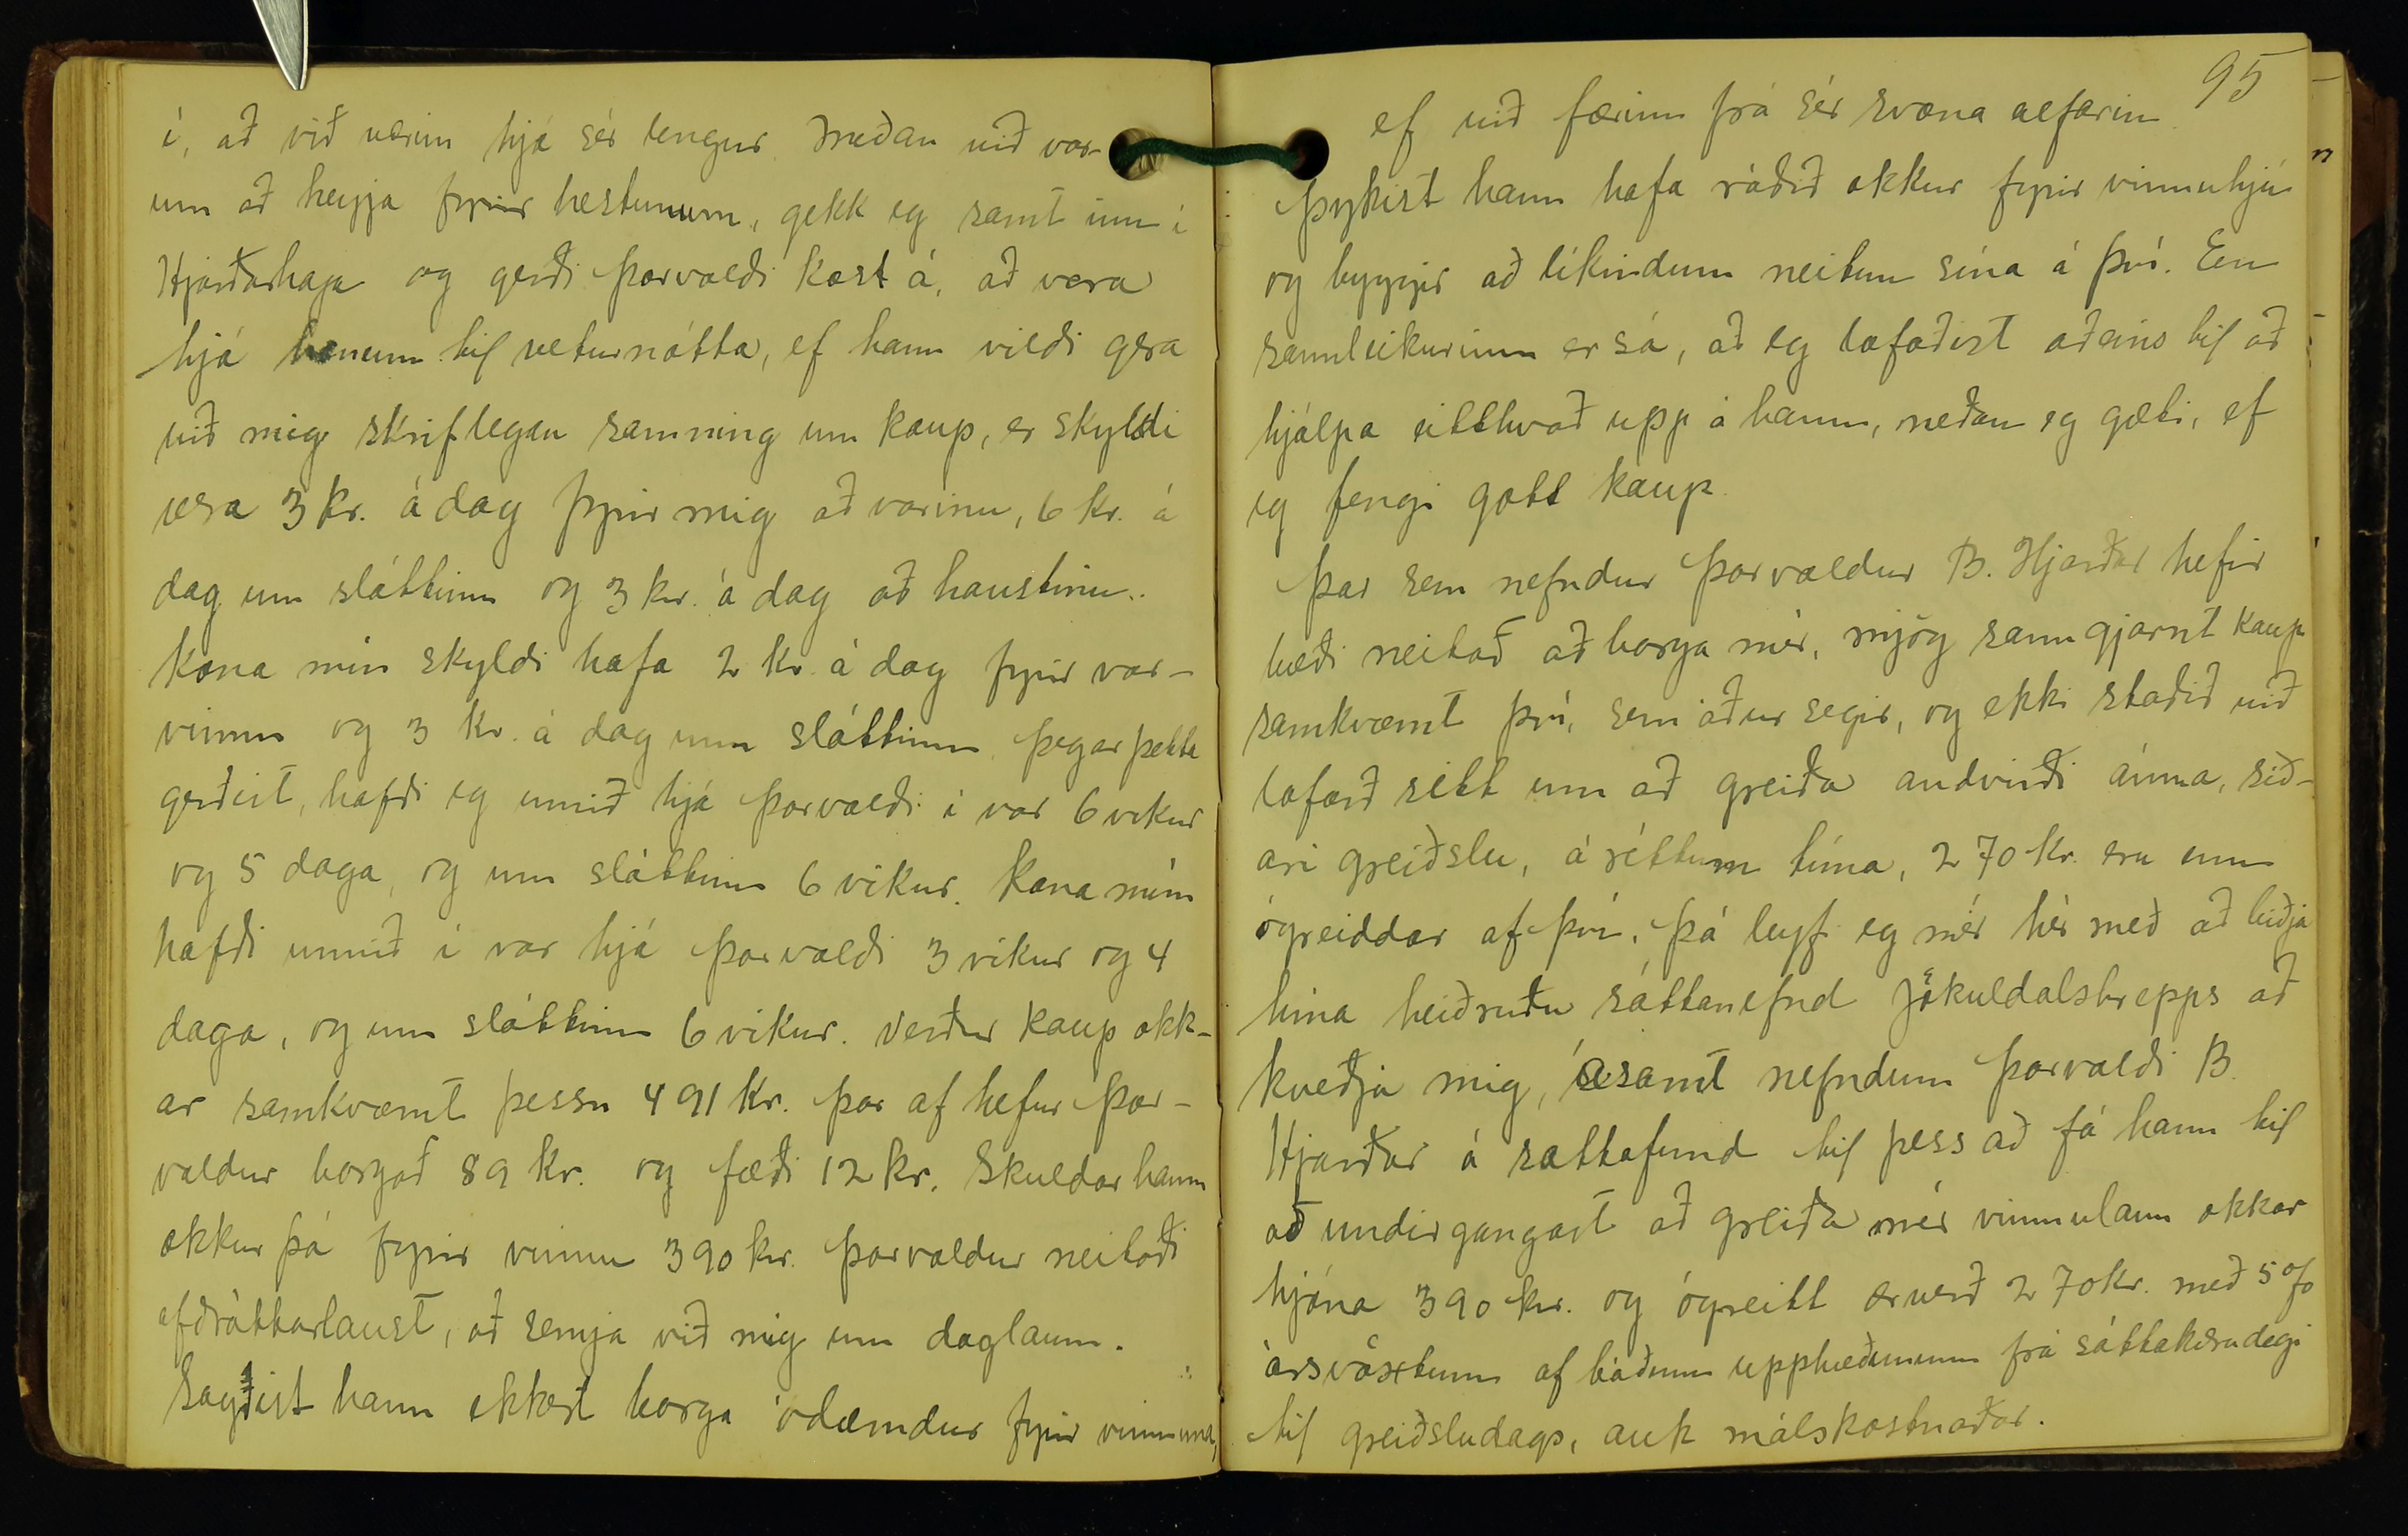 í, að við værim hjá sér lengur. Meðan við vor-
um að heyja fyrir hestunum, gekk eg samt inn í
Hjarðarhaga og gerði Þorvaldi kost á, að vera
hjá honum til veturnátta, ef hann vildi gera
við mig skriflegan samning um kaup, er skyldi
vera 3 kr. á dag fyrir mig að vorinu, 6 kr. á
dag um sláttinn og 3 kr. á dag að haustinu.
Kona mín skyldi hafa 2 kr. á dag fyrir vor-
vinnu og 3 kr. á dag um sláttinn. Þegar þetta
gerðist, hafði eg unnið hjá Þorvaldi í vor 6 vikur
og 5 daga, og um sláttinn 6 vikur. Kona mín
hafði unnið í vor hjá Þorvaldi 3 vikur og 4
daga, og um sláttinn 6 vikur. Verður kaup okk-
ar samkvæmt þessu 491 kr. Þar af hefur Þor-
valdur borgað 89 kr. og fæði 12 kr. Skuldar hann
okkur þá fyrir vinnu 390 kr. Þorvaldur neitaði
afdráttarlaust, að semja við mig um daglaun.
Sagðist hann ekkert borga ódæmdur fyrir vinnuna,
95
ef við færinn frá sér svona alfarin.
Þykist hann hafa ráðið okkur fyrir vinnuhjú
og byggir að líkindum neitun sína á því. En
sannleikurinn er sá, að eg lofaðist aðeins til að
hjálpa eitthvað upp á hann, meðan eg gæti, ef
eg fengi gott kaup.
Þar sem nefndur Þorvaldur B. Hjarðar hefir
bæði neitað að borga mér, mjög sanngjarnt kaup
samkvæmt því, sem áður segir, og ekki staðið við
loforð sitt um að greiða andvirði ánna, síð-
ari greiðslu, á réttum tíma, 270 kr. eru enn
ógreiddar af því, þá leyfi eg mér hér með að biðja
hina heiðruðu sáttanefnd Jökuldalshrepps að
kveðja mig, ásamt nefndum Þorvaldi B.
Hjarðar á sáttafund til þess að fá hann til
að undirgangast að greiða mér vinnulaun okkar
hjóna 390 kr. og ógreitt ærverð 270 kr. með 5%
ársvöxtum af báðum upphæðunum frá sáttakærudegi
til greiðsludags, auk málskostnaðar.